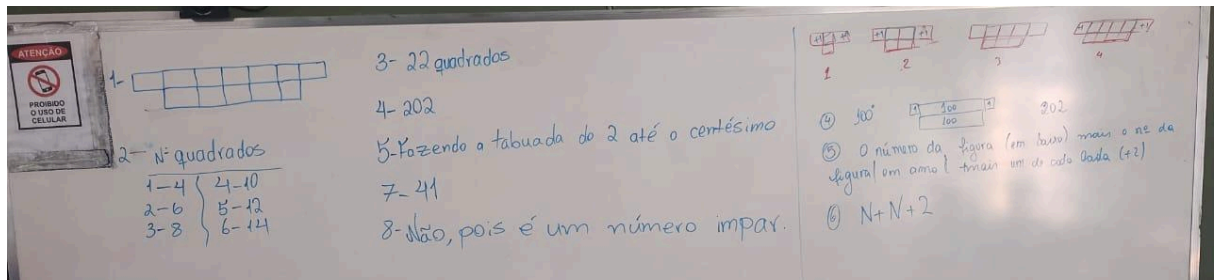 ATENÇÃO
PROIBIDO
O USO DE
CELULAR
1-
2- Nº quadrados
1-4 4-10
2-6 5-12
3-8 6-14
3- 22 quadrados
4- 202
5- Fazendo a tabuada do 2 até o centésimo
7- 41
8- Não, pois é um número impar.
+1 +1 +1 +1 +1 +1
1 2 3 4
4 100° +1 100 +1 202
100
5 O número da figura (em baixo) mais o nº da
figura (em cima) + mais um de cada lado (+2)
6 N+N+2